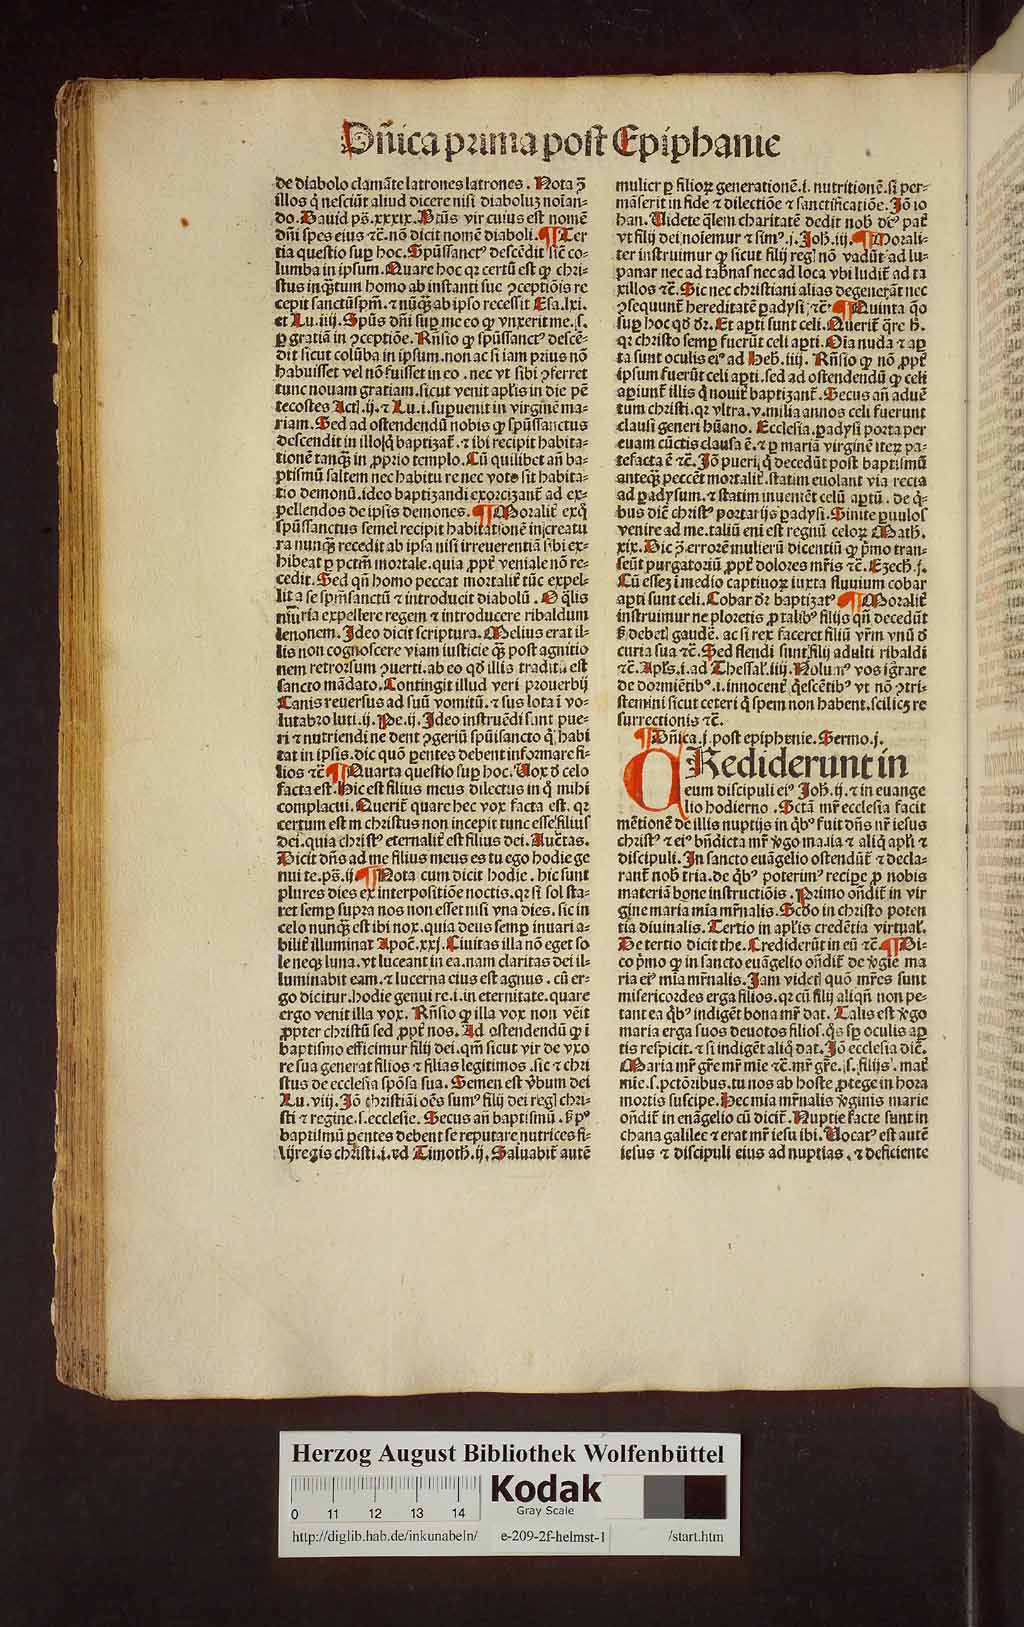 Dñica prima post Epiphanie
de diabolo clamãte latrones latrones. Nota ꝯ̃
illos q̃ nesciũt aliud dicere nisi diaboluz noĩan-
do. Dauid ps̃. xxxix. Btũs vir cuius est nomẽ
dñi spes eius ⁊c̃. nõ dicit nomẽ diaboli. ¶Ter
tia questio sup hoc. Spũssanctꝰ descẽdit sic̃ co-
lumba in ipsum. Quare hoc qꝛ certũ est ꝙ chri-
stus inqꝫtum homo ab instanti sue ꝯceptiõis re
cepit sanctũspm̃. ⁊ nũqꝫ ab ipso recessit Esa. lxi.
et Lu. iiij. Spũs dñi sup me eo ꝙ vnxerit me. s.
ꝑ gratiã in ꝯceptiõe. Rñsio ꝙ spũssanctꝰ descẽ-
dit sicut colũba in ipsum. non ac si iam prius nõ
habuisset vel nõ fuisset in eo. nec vt sibi ꝯferret
tunc nouam gratiam. sicut venit apl̃is in die pẽ
tecostes Act̃. ij. ⁊ Lu. i. supuenit in virginẽ ma-
riam. Sed ad ostendendũ nobis ꝙ spũssanctus
descendit in illos q̃ baptizant̃. ⁊ ibi recipit habita-
tionẽ tanqꝫ in ꝓprio templo. Cũ quilibet añ ba-
ptismũ saltem nec habitu re nec voto sit habita-
tio demonũ. ideo baptizandi exorcizant̃ ad ex-
pellendos de ipsis demones. ¶Moralit̃ exq̃
spũssanctus semel recipit habitationẽ in creatu
ra nunqꝫ recedit ab ipsa nisi irreuerentiã sibi ex-
hibeat ꝑ pctm̃ mortale. quia ꝓpt̃ veniale nõ re-
cedit. Sed qñ homo peccat mortalit̃ tũc expel-
lit a se spm̃sanctũ ⁊ introducit diabolũ. O q̃lis
iniuria expellere regem ⁊ introducere ribaldum
lenonem. Ideo dicit scriptura. Melius erat il-
lis non cognoscere viam iusticie qꝫ post agnitio
nem retrorsum ꝯuerti. ab eo qd̃ illis traditũ est
sancto mãdato. Contingit illud veri prouerbij
Canis reuersus ad suũ vomitũ. ⁊ sus lota ĩ vo-
lutabro luti. ij. Pe. ij. Ideo instruẽdi sunt pue-
ri ⁊ nutriendi ne dent ꝯgeriũ spũisancto q̃ habi
tat in ipsis. dic quõ ꝑentes debent informare fi-
lios ⁊c̃ ¶Quarta questio sup hoc. Vox d̃ celo
facta est. Hic est filius meus dilectus in q̃ mihi
complacui. Querit̃ quare hec vox facta est. qꝛ
certum est ꝙ christus non incepit tunc esse filius
dei. quia christꝰ eternalit̃ est filius dei. Auctas.
Dicit dñs ad me filius meus es tu ego hodie ge
nui te. ps̃. ij ¶Nota cum dicit hodie. hic sunt
plures dies ex interpositiõe noctis. qꝛ si sol sta-
ret semp supra nos non esset nisi vna dies. sic in
celo nunqꝫ est ibi nox. quia deus semp inuaria-
bilit̃ illuminat Apoc̃. xxj. Ciuitas illa nõ eget so
le neqꝫ luna. vt luceant in ea. nam claritas dei il-
luminabit eam. ⁊ lucerna eius est agnus. cũ er-
go dicitur. hodie genui te. i. in eternitate. quare
ergo venit illa vox. Rñsio ꝙ illa vox non vẽit
ꝓpter christũ sed ꝓpt̃ nos. Ad ostendendũ ꝙ ĩ
baptismo efficimur filij dei. qm̃ sicut vir de vxo
re sua generat filios ⁊ filias legitimos. sic ⁊ chri
stus de ecclesia spõsa sua. Semen est v̾bum dei
Lu. viij. Jõ christiãi oẽs sumꝰ filij dei regꝭ chri-
sti ⁊ regine. s. ecclesie. Secus añ baptismũ. ẜ pꝰ
baptismũ ꝑentes debent se reputare nutrices fi-
lij regis christi. i. ad Timoth. ij. Saluabit̃ autẽ
mulier ꝑ filioꝝ generationẽ. i. nutritionẽ. si per-
mãserit in fide ⁊ dilectiõe ⁊ sanctificatiõe. Jõ io
han. Videte q̃lem charitatẽ dedit nob̃ deꝰ pat̃
vt filij dei noiemur ⁊ simꝰ. j. Joh̃. iij. ¶Morali-
ter instruimur ꝙ sicut filij regꝭ nõ vadũt ad lu-
panar nec ad tab̃nas nec ad loca vbi ludit̃ ad ta
xillos ⁊c̃. Sic nec christiani alias degenerãt nec
ꝯsequunt̃ hereditatẽ ꝑadysi ⁊c̃. ¶Quinta q̃o
sup hoc qd̃ dr̃. Et apti sunt celi. Querit̃ q̃re h̃.
qꝛ christo semp fuerũt celi apti. Oĩa nuda ⁊ ap
ta sunt oculis eiꝰ ad Heb̃. iiij. Rñsio ꝙ nõ ꝓpt̃
ipsum fuerũt celi apti. sed ad ostendendũ ꝙ celi
apriunt̃ illis q̃ nouit̃ baptizant̃. Secus añ aduẽ
tum christi. qꝛ vltra. v. milia annos celi fuerunt
clausi generi hũano. Ecclesia. ꝑadysi porta per
euam cũctis clausa ẽ. ⁊ ꝑ mariã virginẽ iterꝫ pa-
tefacta ẽ ⁊c̃. Jõ pueri q̃ decedũt post baptismũ
anteqꝫ peccẽt mortalit̃. statim euolant via recta
ad ꝑadysum. ⁊ statim inueniẽt celũ aptũ. de q̃-
bus diẽ christꝰ portarijs ꝑadysi. Sinite ꝑuulos
venire ad me. taliũ eni est regnũ celoꝝ Math̃.
xix. Hic ꝯ̃ errorẽ mulierũ dicentiũ ꝙ p̃mo tran-
seũt purgatoriũ ꝓpt̃ dolores mr̃is ⁊c̃. Ezech̃. j.
Cũ essez ĩ medio captiuoꝝ iuxta fluuium cobar
apti sunt celi. Cobar dr̃ baptizatꝰ ¶Moralit̃
instruimur ne ploretis ꝓ talibꝰ filijs qñ decedũt
ẜ debetꝭ gaudẽ. ac si rex faceret filiũ vr̃m vnũ d̃
curia sua ⁊c̃. Sed flendi sunt filij adulti ribaldi
⁊c̃. Apl̃s. i. ad Thessal̃. iiij. Nolumꝰ vos ig̃rare
de dormiẽtibꝰ. i. innocent̃ q̃escẽtibꝰ vt nõ ꝯtri-
stemini sicut ceteri q̃ spem non habent. scilicꝫ re
surrectionis ⁊c̃.
¶Dñica. j. post epiphanie. Sermo. j.
CRediderunt in
eum discipuli eiꝰ Joh̃. ij. ⁊ in euange
lio hodierno. Sctã mr̃ ecclesia facit
mẽtionẽ de illis nuptijs in q̃bꝰ fuit dñs nr̃ iesus
christꝰ ⁊ eiꝰ bñdicta mr̃ v̾go maria ⁊ aliq̃ apl̃i ⁊
discipuli. In sancto euãgelio ostendũt̃ ⁊ decla-
rant̃ nob̃ tria. de q̃bꝰ poterimꝰ recipe ꝓ nobis
materiã bone instructiõis. Primo oñdit̃ in vir
gine maria mĩa mr̃nalis. Scd̃o in christo poten
tia diuinalis. Tertio in apl̃is credẽtia virtual̃.
De tertio dicit the. Crediderũt in eũ ⁊c̃. ¶Di-
co p̃mo ꝙ in sancto euãgelio oñdit̃ de v̾gie ma
ria eiꝰ mĩa mr̃nalis. Jam videtꝭ quõ mr̃es sunt
misericordes erga filios. qꝛ cũ filij aliqñ non pe-
tant ea q̃bꝰ indigẽt bona mr̃ dat. Talis est v̾go
maria erga suos deuotos filios. q̃s sp̃ oculis ap
tis respicit. ⁊ si indigẽt aliq̃ dat. Jõ ecclesia dic̃.
Maria mr̃ gr̃e mr̃ mĩe ⁊c̃. mr̃ gr̃e. s. filijs. mat̃
mĩe. s. pctõribus. tu nos ab hoste ꝓtege in hora
mortis suscipe. Hec mĩa mr̃nalis v̾ginis marie
oñdit̃ in euãgelio cũ dicit̃. Nuptie facte sunt in
chana galilee ⁊ erat mr̃ iesu ibi. Vocatꝰ est autẽ
iesus ⁊ discipuli eius ad nuptias. ⁊ deficiente
Herzog August Bibliothek Wolfenbüttel
0 11 12 13 14
Kodak
Gray Scale
http://diglib.hab.de/inkunabeln/ e-209-2f-helmst-1 /start.htm